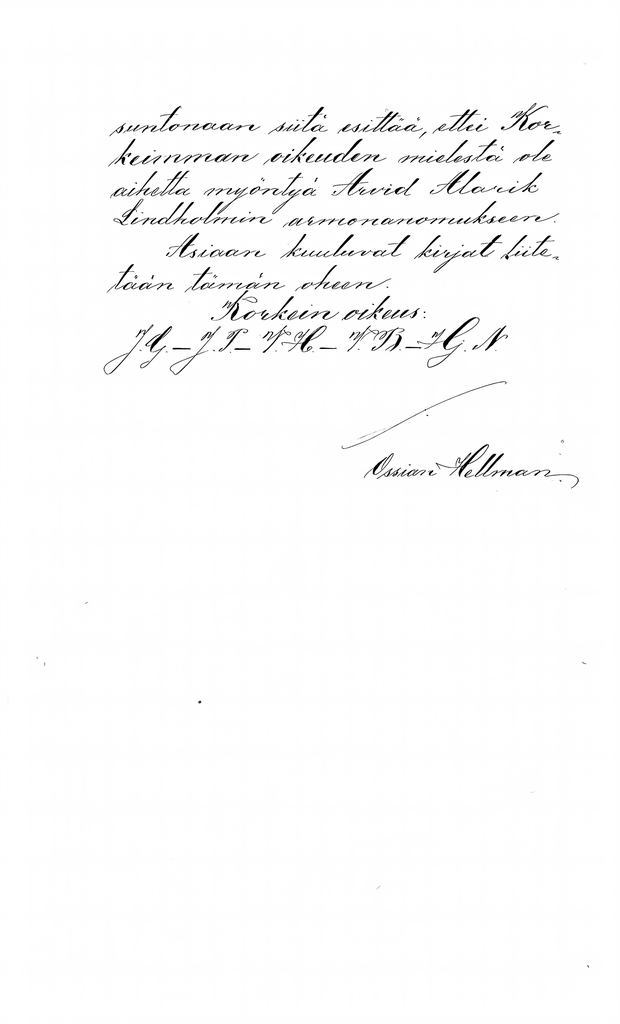 suntonaan siitä esittää, ettei Kor-
keimman oikeuden mielestä ole
aihetta myöntyä Arvid Alarik
Lindholmin armonanomukseen.
Asiaan kuuluvat kirjat liite-
tään tämän oheen.
Korkein oikeus:
J. G. — J. P. — V. H. — V. B. — G. N.
Ossian Hellman.